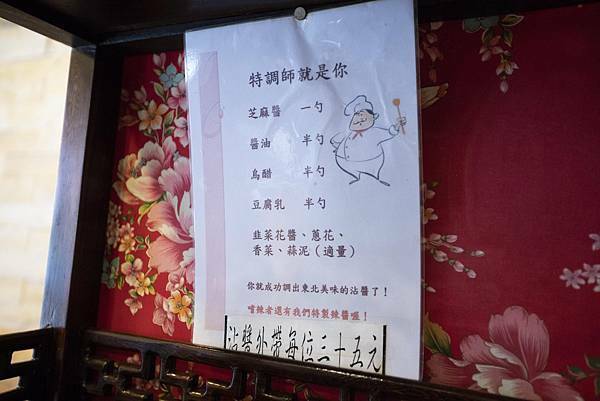 特調師就是你
芝麻醬 一勺
醬油 半勺
烏醋 半勺
豆腐乳 半勺
韭菜花醬、蔥花、
香菜、蒜泥（適量）
你就成功調出東北美味的沾醬了！
嗜辣者還有我們特製辣醬喔！
沾醬外帶每位三十五元